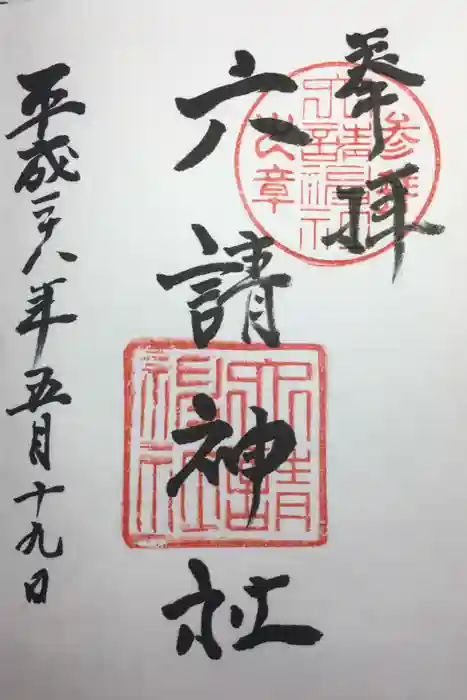 奉拝
参拝
六請神社
之章
六請神社
六請
神社
平成二八年五月十九日